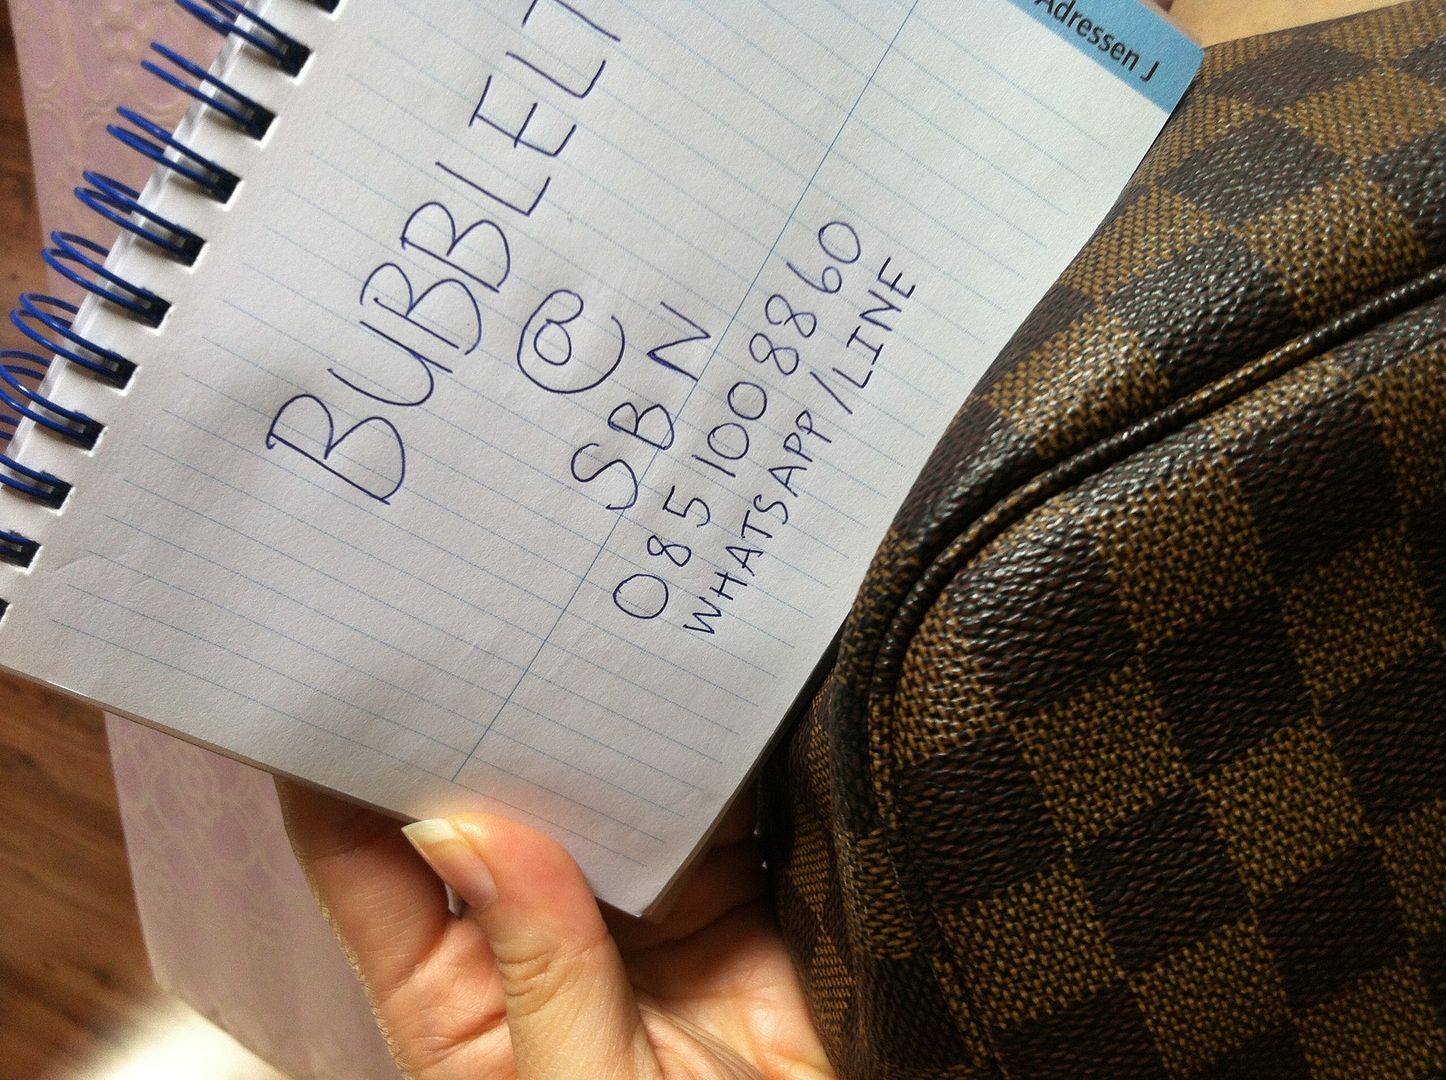 Adressen J
BUBBLELT
@
SBN
085 100 8860
WHATSAPP/LINE